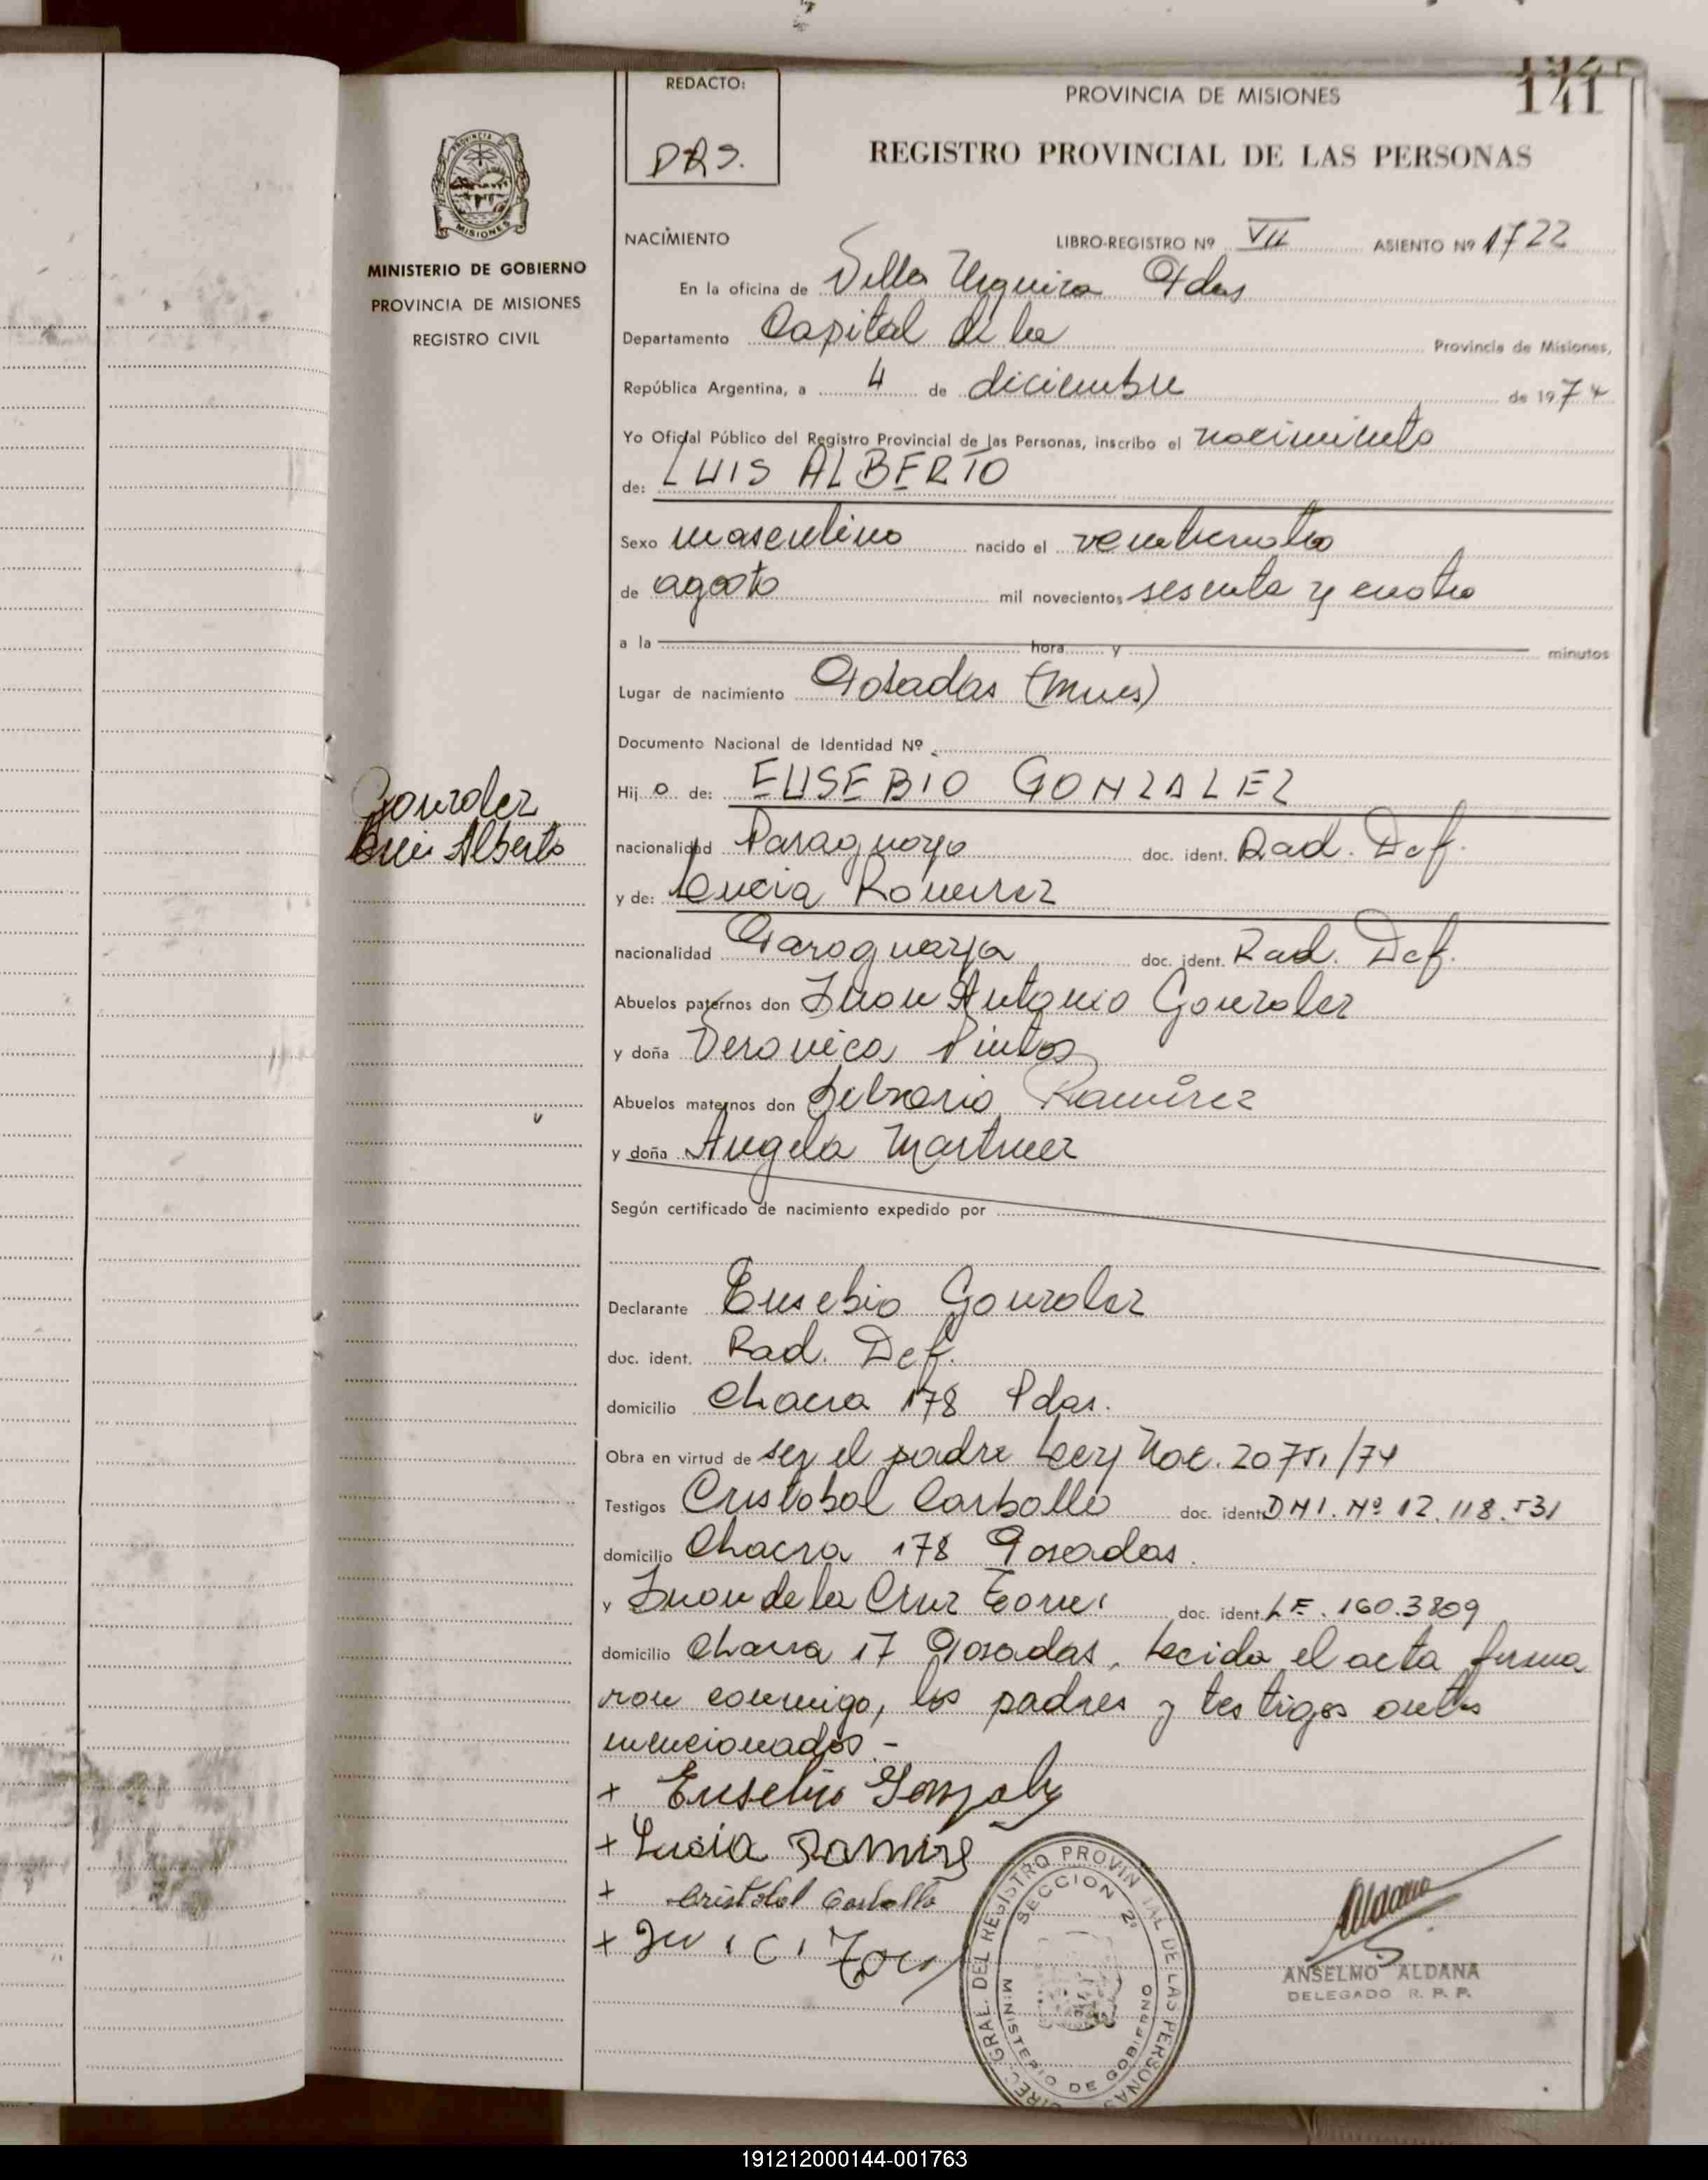 141
REDACTO:
DRS.
PROVINCIA DE MISIONES
REGISTRO PROVINCIAL DE LAS PERSONAS
PROVINCIA
MISIONES
MINISTERIO DE GOBIERNO
PROVINCIA DE MISIONES
REGISTRO CIVIL
NACIMIENTO LIBRO-REGISTRO Nº VII ASIENTO Nº 1722
En la oficina de Villa Urquiza Pdas
Departamento Capital de la Provincia de Misiones,
República Argentina, a 4 de diciembre de 1974
Yo Oficial Público del Registro Provincial de las Personas, inscribo el nacimiento
de: LUIS ALBERTO
Sexo masculino nacido el veinticuatro
de agosto mil novecientos sesenta y cuatro
a la hora y minutos
Lugar de nacimiento Posadas (Mnes)
Documento Nacional de Identidad Nº
Hij o de: EUSEBIO GONZALEZ
Gonzalez
Luis Alberto
nacionalidad Paraguaya doc. ident. Rad. Def.
y de: Lucia Ramirez
nacionalidad Paraguaya doc. ident. Rad. Def.
Abuelos paternos don Juan Antonio Gonzalez
y doña Veronica Pintos
Abuelos maternos don Ramirez
y doña Angela Martinez
Según certificado de nacimiento expedido por
Declarante Eusebio Gonzalez
doc. ident. Rad. Def.
domicilio Chacra 178 Pdas.
Obra en virtud de ser el padre Ley Nac. 20751/74
Testigos Cristobal Carballo doc. ident. DNI. Nº 12.118.531
domicilio Chacra 178 Posadas.
y Juan de la Cruz Torres doc. ident. LE. 160.3809
domicilio Chacra 17 Posadas. Lecida el acta firma
ron conmigo, los padres y testigos antes
mencionados.-
+ Eusebio Gonzalez
+ Lucia Ramirez
+ Cristobal Carballo
+
DIREC. GRAL. DEL REGISTRO PROVINCIAL DE LAS PERSONAS
SECCION 2ª
MINISTERIO DE GOBIERNO
Aldana
ANSELMO ALDANA
DELEGADO R. P. P.
191212000144-001763